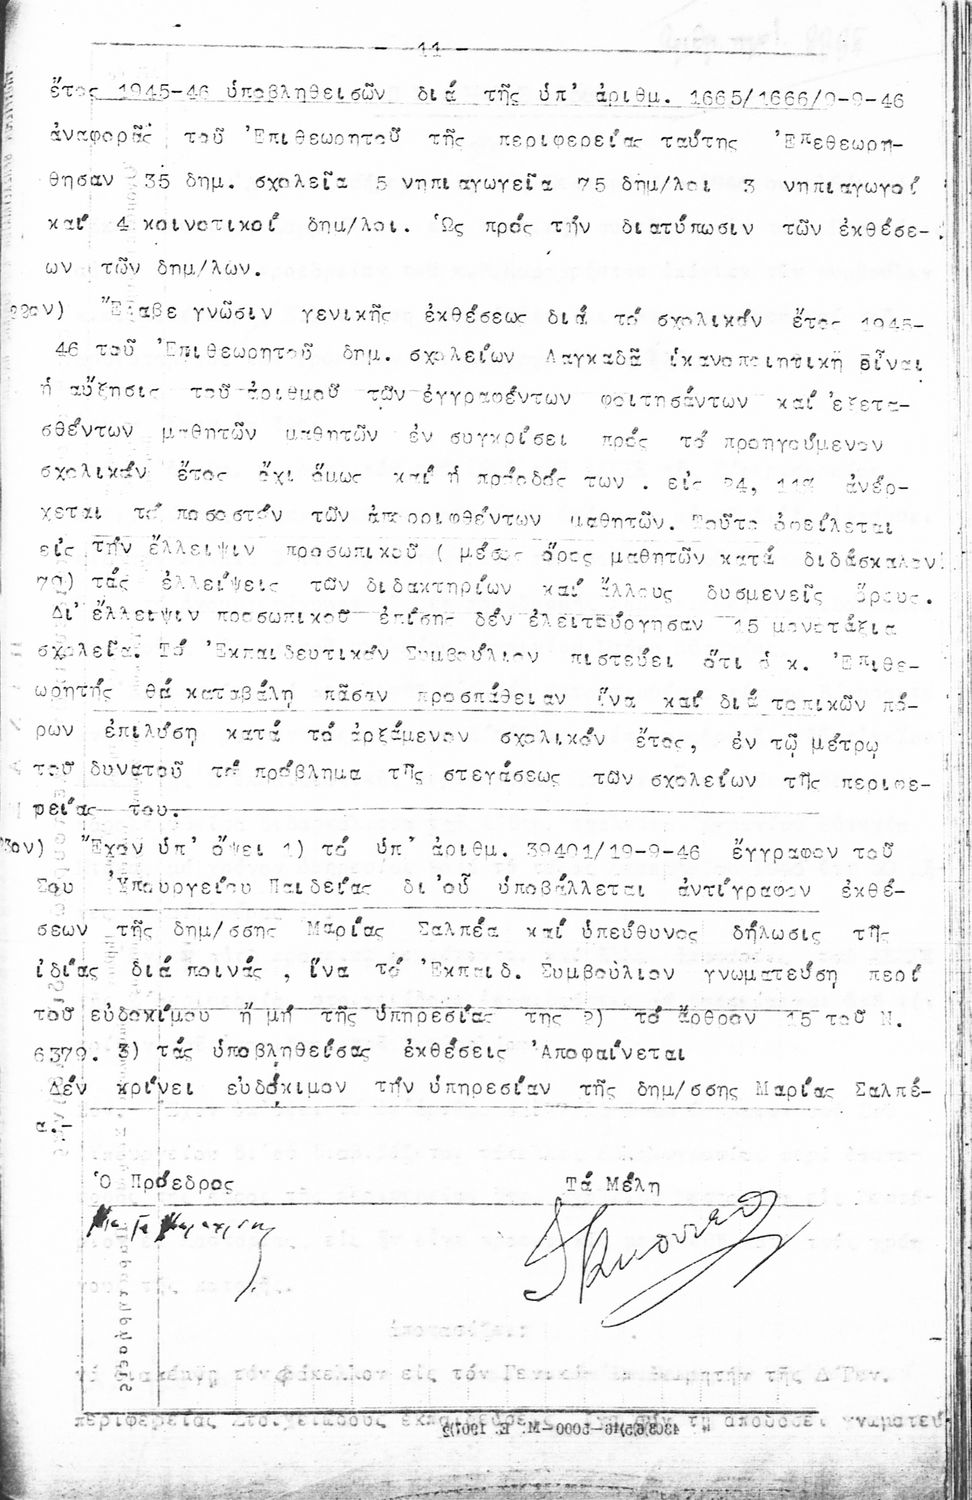 - 11 -
ἔτος 1945-46 ὑποβληθεισῶν διά τῆς ὑπ' ἀριθμ. 1665/1666/9-9-46
ἀναφορᾶς τοῦ Ἐπιθεωρητοῦ τῆς περιφερείας ταύτης Ἐπεθεωρη-
θησαν 35 δημ. σχολεῖα 5 νηπιαγωγεῖα 75 δημ/λοι 3 νηπιαγωγοί
καί 4 κοινοτικοί δημ/λοι. Ὡς πρός τήν διατύπωσιν τῶν ἐκθέσε-
ων τῶν δημ/λων.
22ον) Ἔλαβε γνῶσιν γενικῆς ἐκθέσεως διά τό σχολικόν ἔτος 1945-
46 τοῦ Ἐπιθεωρητοῦ δημ. σχολείων Λαγκαδᾶ ἱκανοποιητική εἶναι
ἡ αὔξησις τοῦ ἀριθμοῦ τῶν ἐγγραφέντων φοιτησάντων καί ἐξετα-
σθέντων μαθητῶν μαθητῶν ἐν συγκρίσει πρός τό προηγούμενον
σχολικόν ἔτος ὄχι ὅμως καί ἡ πρόοδός των . εἰς 24, ἀνέρ-
χεται τό ποσοστόν τῶν ἀπορριφθέντων μαθητῶν. Τοῦτο ὀφείλεται
εἰς τήν ἔλλειψιν προσωπικοῦ ( μέσος ὅρος μαθητῶν κατά διδάσκαλον
79) τάς ἐλλείψεις τῶν διδακτηρίων καί ἄλλους δυσμενεῖς ὅρους.
Δι' ἔλλειψιν προσωπικοῦ ἐπίσης δέν ἐλειτούργησαν 15 μονοτάξια
σχολεῖα. Τό Ἐκπαιδευτικόν Συμβούλιον πιστεύει ὅτι ὁ κ. Ἐπιθε-
ωρητής θά καταβάλη πᾶσαν προσπάθειαν ἵνα καί διά τοπικῶν πό-
ρων ἐπιλύση κατά τό ἀρξάμενον σχολικόν ἔτος, ἐν τῷ μέτρῳ
τοῦ δυνατοῦ τό πρόβλημα τῆς στεγάσεως τῶν σχολείων τῆς περιφε-
ρείας του.
23ον) Ἔχον ὑπ' ὄψει 1) τό ὑπ' ἀριθμ. 39401/19-9-46 ἔγγραφον τοῦ
Σου Ὑπουργείου Παιδείας δι'οὗ ὑποβάλλεται ἀντίγραφον ἐκθέ-
σεων τῆς δημ/σσης Μαρίας Σαλπέα καί ὑπεύθυνος δήλωσις τῆς
ἰδίας διά ποινάς , ἵνα τό Ἐκπαιδ. Συμβούλιον γνωματεύση περί
τοῦ εὐδοκίμου ἤ μή τῆς ὑπηρεσίας της 2) τό ἄρθρον 15 τοῦ Ν.
6379. 3) τάς ὑποβληθείσας ἐκθέσεις Ἀποφαίνεται
Δέν κρίνει εὐδόκιμον τήν ὑπηρεσίαν τῆς δημ/σσης Μαρίας Σαλπέ-
α.-
Ὁ Πρόεδρος Τά Μέλη